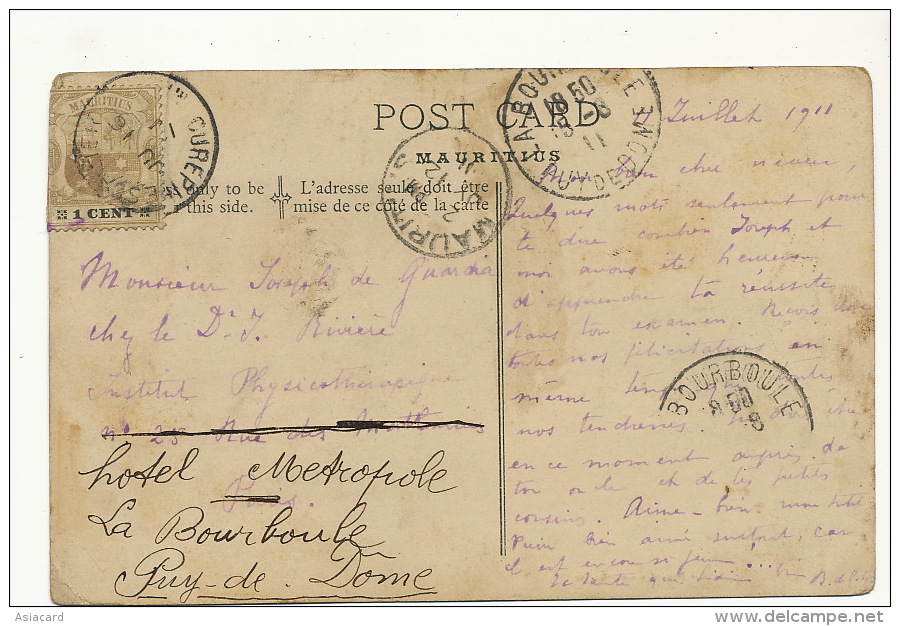 MAURITIUS
1 CENT
CUREP
POST CARD
MAURITIUS
only to be
this side.
L'adresse seule doit être
mise de ce côté de la carte
MAURITIUS
LA BOURBOULE
18 50
15 -8
11
PUY DE DOME
BOURBOULE
Monsieur Joseph de Guardia
chez le Dr J. Rivière
Institut Physicothérapique
n° 25 Rue des Mathurins
Paris.
hotel Metropole
La Bourboule
Puy-de-Dôme
Juillet 1911
Mon bien cher neveu,
Quelques mots seulement pour
te dire combien Joseph et
moi avons été heureux
d'apprendre ta réussite
dans ton examen. Reçois donc
toutes nos félicitations en
même temps que toutes
nos tendresses.
en ce moment auprès de
ton oncle et de tes petits
cousins. Aime-bien
bien aimé surtout, car
il est encore si jeune!...
Ta tante qui t'aime bien
Asiacard
www.delcampe.net